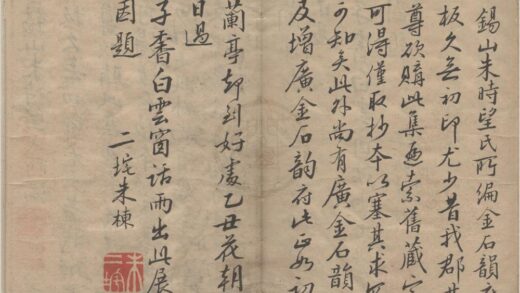 錫山朱時望氏所編金石韻府
板久無初印尤少昔我郡
尊欲購此集遍索舊藏
可得僅取抄本以塞其求
可知矣此外尚有廣金石韻
及增廣金石韻府此
蘭亭却到好處乙丑花朝
日過
子香白雲窗話雨出此展
因題
二垞朱棟
朱
二垞